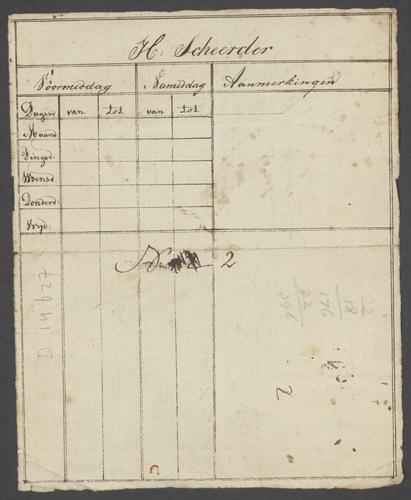 H: Scheerder
Voormiddag Namiddag Aanmerkingen
Dagen van tot van tot
Maand.
Dingsd.
Woensd.
Donderd.
Vryd.
N 2
D 19 627
22
18
176
22
396
2